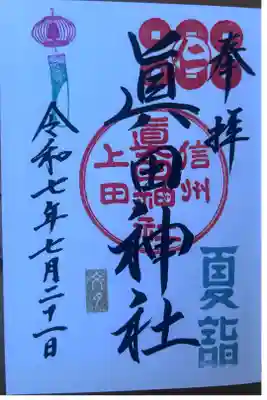 奉拝
夏詣
眞田神社
信州
眞田神社
上田
令和七年七月二十一日